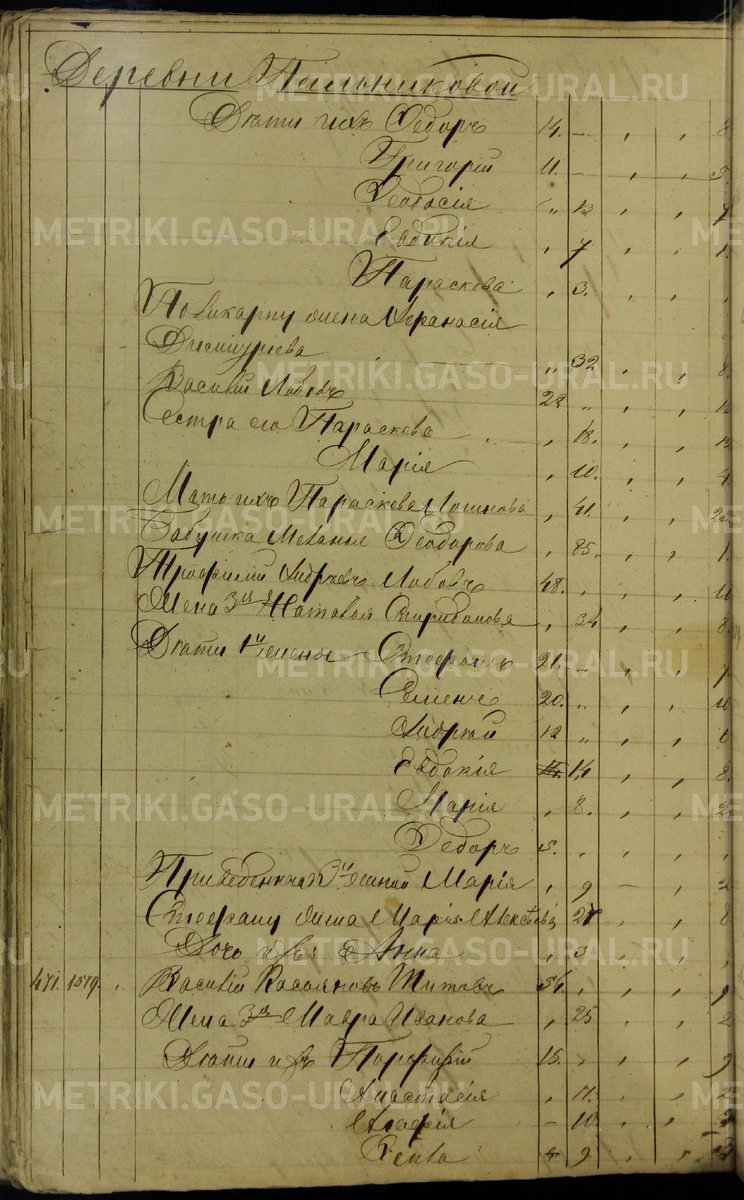 Деревни Пильниковой
Дѣти ихъ Ѳедоръ 14. — , , 8
Григорій 11. — , , 5.
Ѳеодосія " 12 , , 7
Евдокія , 7 , , 1.
Параскова , 3. , , ,
Поликарпу жена Афанасія
" 32 , , 8.
Василій Лобовъ 22 " , ,
Сестра его Параскева , 18. , ,
Марія , 10. , , 4
Мать ихъ Параскева Логинова , 41. , ,
Бабушка Меланья Ѳеодорова , 85. , , 1
Трофимъ Андреевъ Лобовъ 48. , , ,
Жена 3я Наталья Спиридонова , 34 , , 8
Дѣти 1й жены Стефанъ 21. — , , 7
Семенъ 20. " , ,
Андрей 12 " , , 6
Евдокія , 14 , , 8.
Марія , 8. , , 2
Ѳедоръ 5. , , , ,
Приведенная 3й женой Марія , 9 — ,
Стефану жина Марія Алексѣева , 21 , , 8
Дочь ихъ Анна , 3 , , ,
471. 1579. , Василій Касьяновъ Титовъ 54. , , , 9
Жена 3я Мавра Иванова , 25 , , 2
Дѣти ихъ Порфирій 15. , , , 9
Анастасія , 11. , , 2
Агафія — 10. , ,
Ѳекла 9 , ,
METRIKI.GASO-URAL.RU